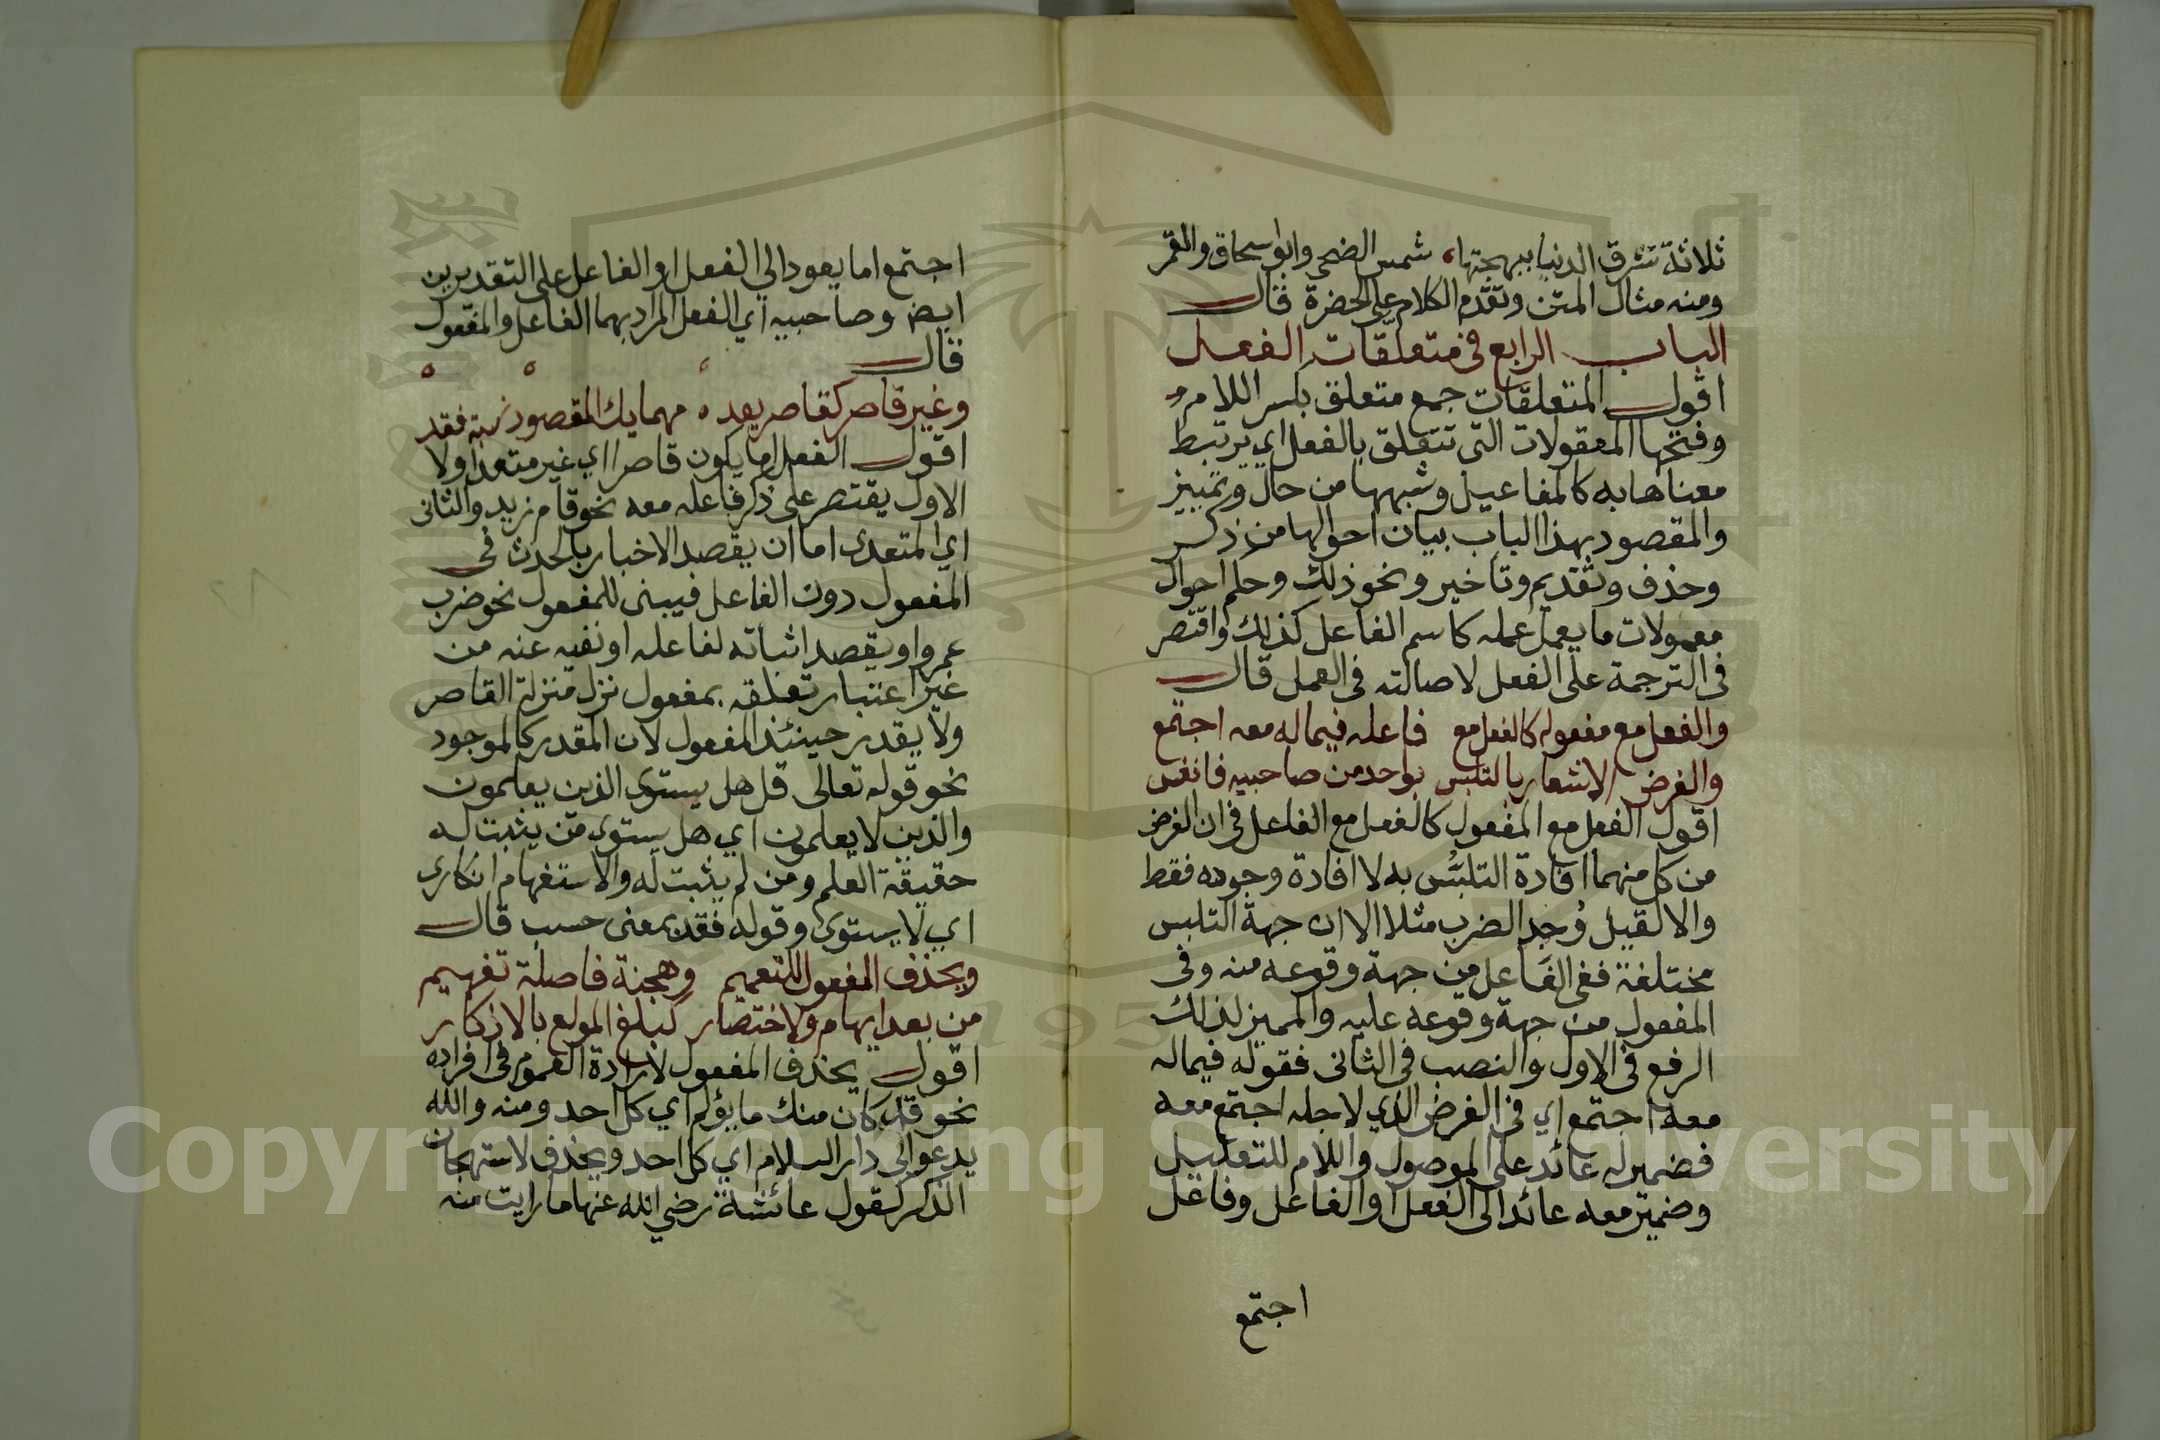 ثلاثة تشرق الدنيا ببهجتها، شمس الضحى وابو اسحاق والقمر
ومنه مثال المتن وتقدم الكلام على الحضرة قال
الباب الرابع في متعلقات الفعل
اقول المتعلقات جمع متعلق بكسر اللام
وفتحها المعقولات التي تتعلق بالفعل اي يرتبط
معناها به كالمفاعيل وشبهها من حال وتمييز
والمقصود بهذا الباب بيان احوالها من ذكر
وحذف وتقديم وتاخير ونحو ذلك وحكم احوال
معمولات ما يعمل عمله كاسم الفاعل كذلك واقتصر
في الترجمة على الفعل لاصالته في العمل قال
والفعل مع مفعوله كالفعل مع فاعله فيما له معه اجتمع
والغرض الاشعار بالتلبس بواحد من صاحبيه فانفس
اقول الفعل مع المفعول كالفعل مع الفاعل في ان الغرض
من كل منهما افادة التلبُّس به لا افادة وجوده فقط
والا لقيل وُجد الضرب مثلا الا ان جهة التلبس
مختلفة ففي الفاعل من جهة وقوعه منه وفي
المفعول من جهة وقوعه عليه والمميز لذلك
الرفع في الاول والنصب في الثاني فقوله فيما له
معه اجتمع اي في الغرض الذي لاجله اجتمع معه
فضمير له عائد على الموصول واللام للتعليل
وضمير معه عائد الى الفعل او الفاعل وفاعل
اجتمع
اجتمع اما يعود الي الفعل او الفاعل على التقديرين
ايضا وصاحبيه اي الفعل المراد بهما الفاعل والمفعول
قال
وغير قاصر كقاصر يعد ه مهما يك المقصود نسبة فقد
اقول الفعل اما يكون قاصرا اي غير متعد اولا
الاول يقتصر على ذكر فاعله معه نحو قام زيد والثاني
اي المتعدى اما ان يقصد الاخبار بالحدث في
المفعول دون الفاعل فيبنى للمفعول نحو ضرب
عمرو او يقصد اثباته لفاعله او نفيه عنه من
غير اعتبار تعلقه بمفعول نزل منزلة القاصر
ولا يقدر حينئذ المفعول لان المقدر كالموجود
نحو قوله تعالى قل هل يستوى الذين يعلمون
والذين لا يعلمون اي هل يستوى من يثبت له
حقيقة العلم ومن لم يثبت له والاستفهام انكارى
اي لا يستوى وقوله فقد بمعنى حسب قال
ويحذف المفعول للتعميم وهجنة فاصلة تفهيم
من بعد ابهام ولاختصار كبلغ المولع بالاذكار
اقول يحذف المفعول لارادة العموم في افراده
نحو قد كان منك ما يؤلم اي كل احد ومنه والله
يدعو الى دار السلام اي كل احد ويحذف لاستهجان
الذكر كقول عائشة رضي الله عنها ما رايت منه
Copyright © King Saud University
1957